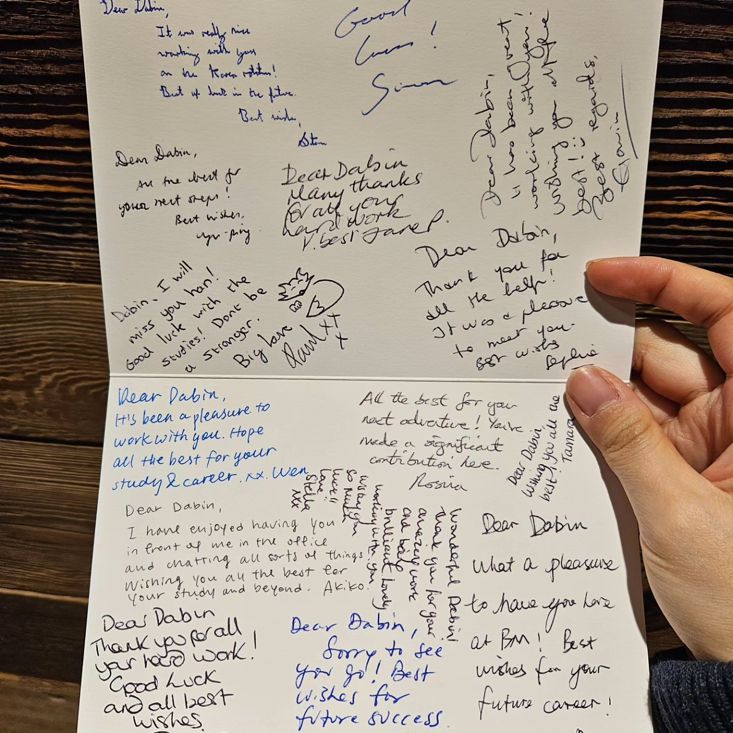 Dear Dabin,
It was really nice
working with you
on the Korea
Best of luck in the future.
Best wishes,
Good
Luck!
Simon
Dear Dabin,
It has been great
working with you!
Wishing you all the
best! :)
Best regards,
Dear Dabin,
All the best for
your next steps!
Best wishes,
Dear Dabin
Many thanks
for all your
hard work
V. best Jane P.
Dear Dabin,
Thank you for
all the help!
It was a pleasure
to meet you.
Best wishes
Sophie
Dabin, I will
miss you hon!
Good luck with the
studies! Dont be
a stranger.
Big love
xx
x
Dear Dabin,
It's been a pleasure to
work with you. Hope
all the best for your
study & career. xx. Wen
All the best for your
next adventure! You've
made a significant
contribution here.
Dear Dabin,
Wishing you all the
best! Tamara
Dear Dabin,
I have enjoyed having you
in front of me in the office
and chatting all sorts of things.
Wishing you all the best for
your study and beyond. Akiko.
Wonderful Dabin!
Thank you for your
amazing work
and being
brilliant. Lovely
working with you
wishing you
so much
luck!!
Love
Stella
xx
Dear Dabin
What a pleasure
to have you here
at BM! Best
wishes for your
future career!
Dear Dabin
Thank you for all
your hard work!
Good Luck
and all best
wishes
Dear Dabin,
Sorry to see
you go! Best
wishes for
future success.